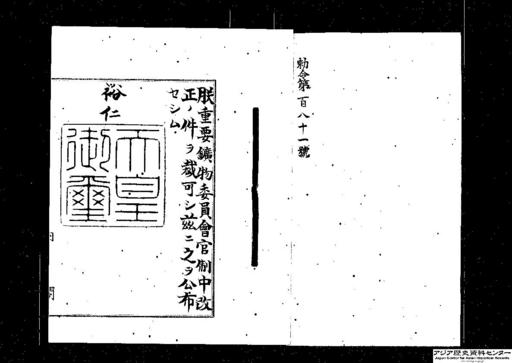 勅令第百八十一號
朕重要鑛物委員會官制中改
正ノ件ヲ裁可シ茲ニ之ヲ公布
セシム
裕仁
天皇
御璽
内閣
アジア歴史資料センター
Japan Center for Asian Historical Records